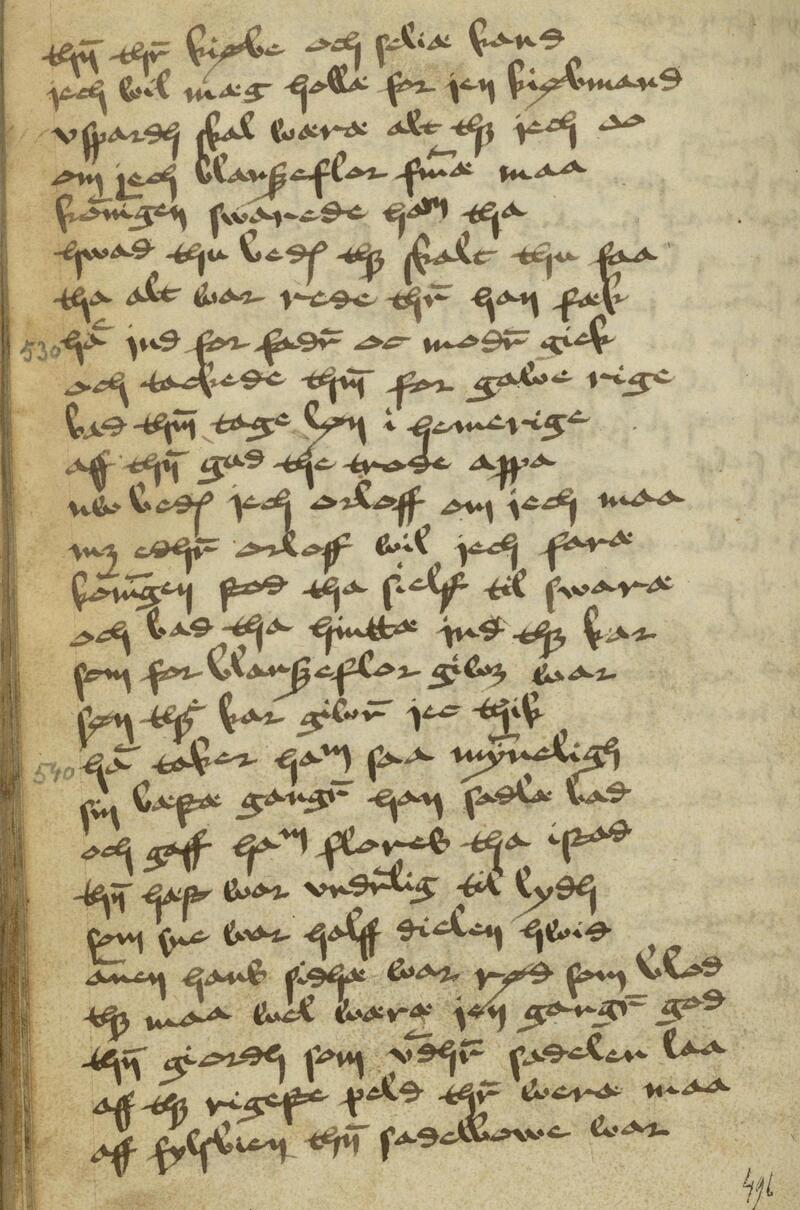 thn̄ thr̄ kiøbe och seliæ kand
jech wil mæg hollæ for jen kiøbmand
vspardh skal wæræ alt thꝫ jech oo
om jech blanszeflor fin̄æ maa
kon̄ı̄gen swarede ham tha
hwad thu bedꝭ thꝫ skalt thu faa
tha alt war rede thr̄ han fæk
530 hā ind for fadr̄ oc modr̄ giek
och tackede thm̄ for gawe rige
bad thm̄ tage løn i hemerige
aff thn̄ gud the trode appa
nw bedꝭ jech orloff om jech maa
mꝫ edhr̄ orloff wil jech faræ
kon̄ı̄gen stod tha sielff til swaræ
och bad tha hinttæ ind thꝫ kar
som for blanszeflor giwꝫ war
søn thꝫ kar giwr̄ jec thik
540 hā taker ham saa mȳneligh
sin bæstæ gangr̄ han sadlæ bad
och gaff ham flores tha istad
thn̄ hæst war vndr̄lig til lydh
som sne war halff dielen hwid
ān̄en hans sidhæ war rød som blod
thꝫ maa wel wæræ jen gangr̄ god
thn̄ giordh som v̄dhr̄ sadelen laa
aff thꝫ rigeste peld thr̄ weræ maa
aff fylsbien thn̄ sadelbowe war
496